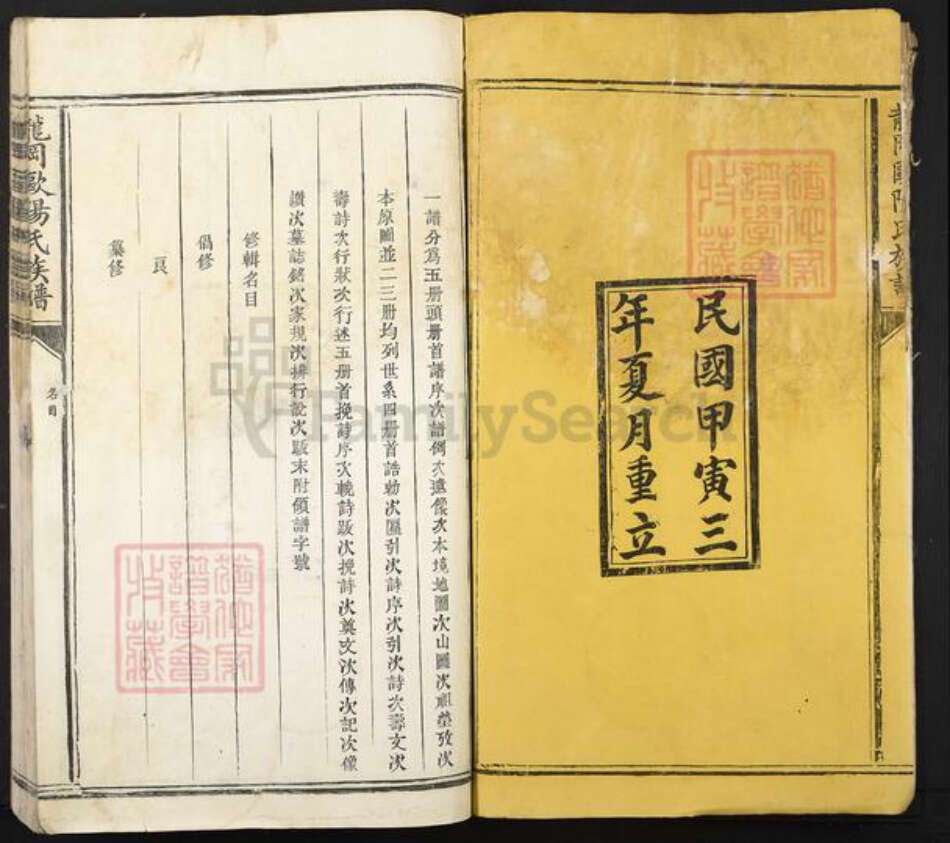 龍岡歐陽氏族譜
民國甲寅三
年夏月重立
一譜分爲五册頭册首譜序次譜例次遺像次本境地圖次山圖次祖塋攷次
本原圖並二三册均列世系四册首誥勅次匾引次詩序次引次詩次壽文次
壽詩次行狀次行述五册首挽詩序次輓詩跋次挽詩次奠文次傳次記次像
讚次墓誌銘次家規次排行說次跋末附領譜字號
修輯名目
倡修
纂修
龍岡歐陽氏族譜
名目
FamilySearch